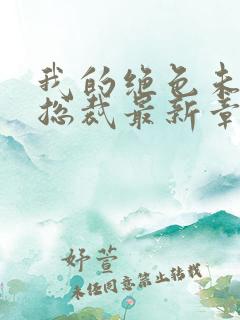 我的绝色未
总裁最新章
妤萱
未经同意禁止转载